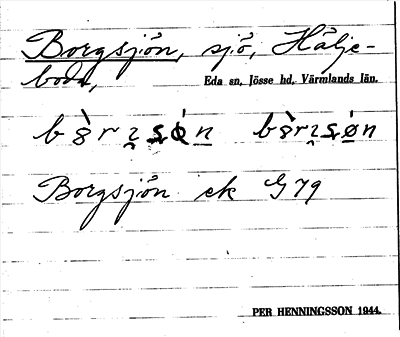 Borgsjön, sjö, Hälje-
boda, Eda sn, Jösse hd, Värmlands län.
Borgsjön ek G 79
PER HENNINGSSON 1944.